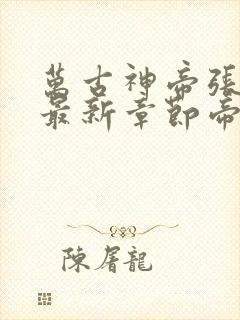 萬古神帝張
最新章節帝
陳屠龍